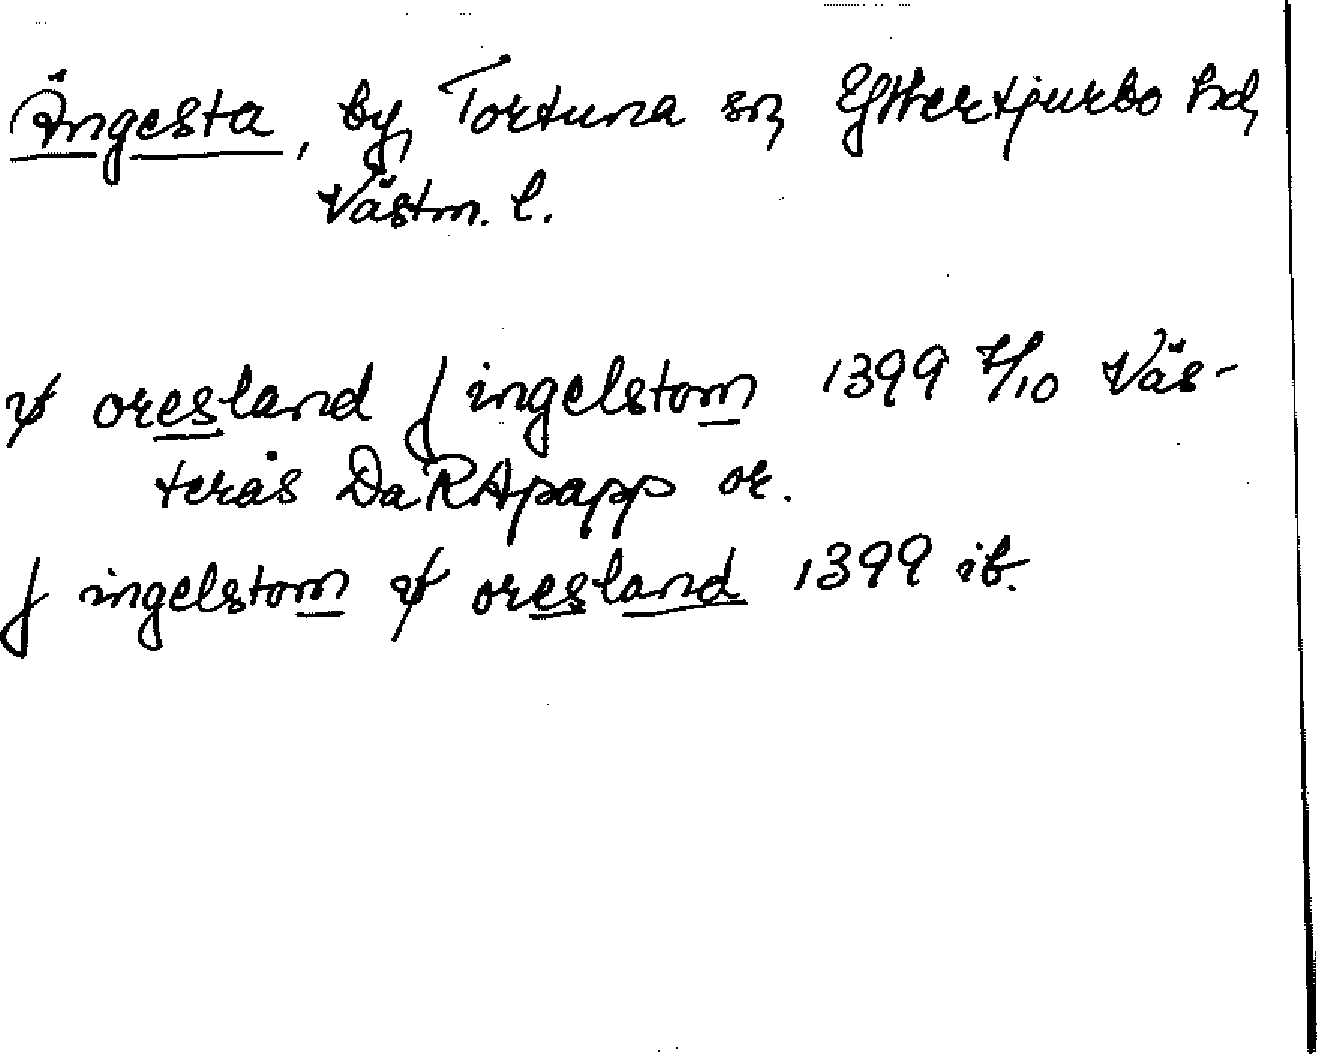 Ängesta, by, Tortuna sn, Yttertjurbo hd,
Västm. l.
oresland j ingelstom 1399 7/10 Väs-
terås DaRApapp or.
j ingelstom oresland 1399 ib.